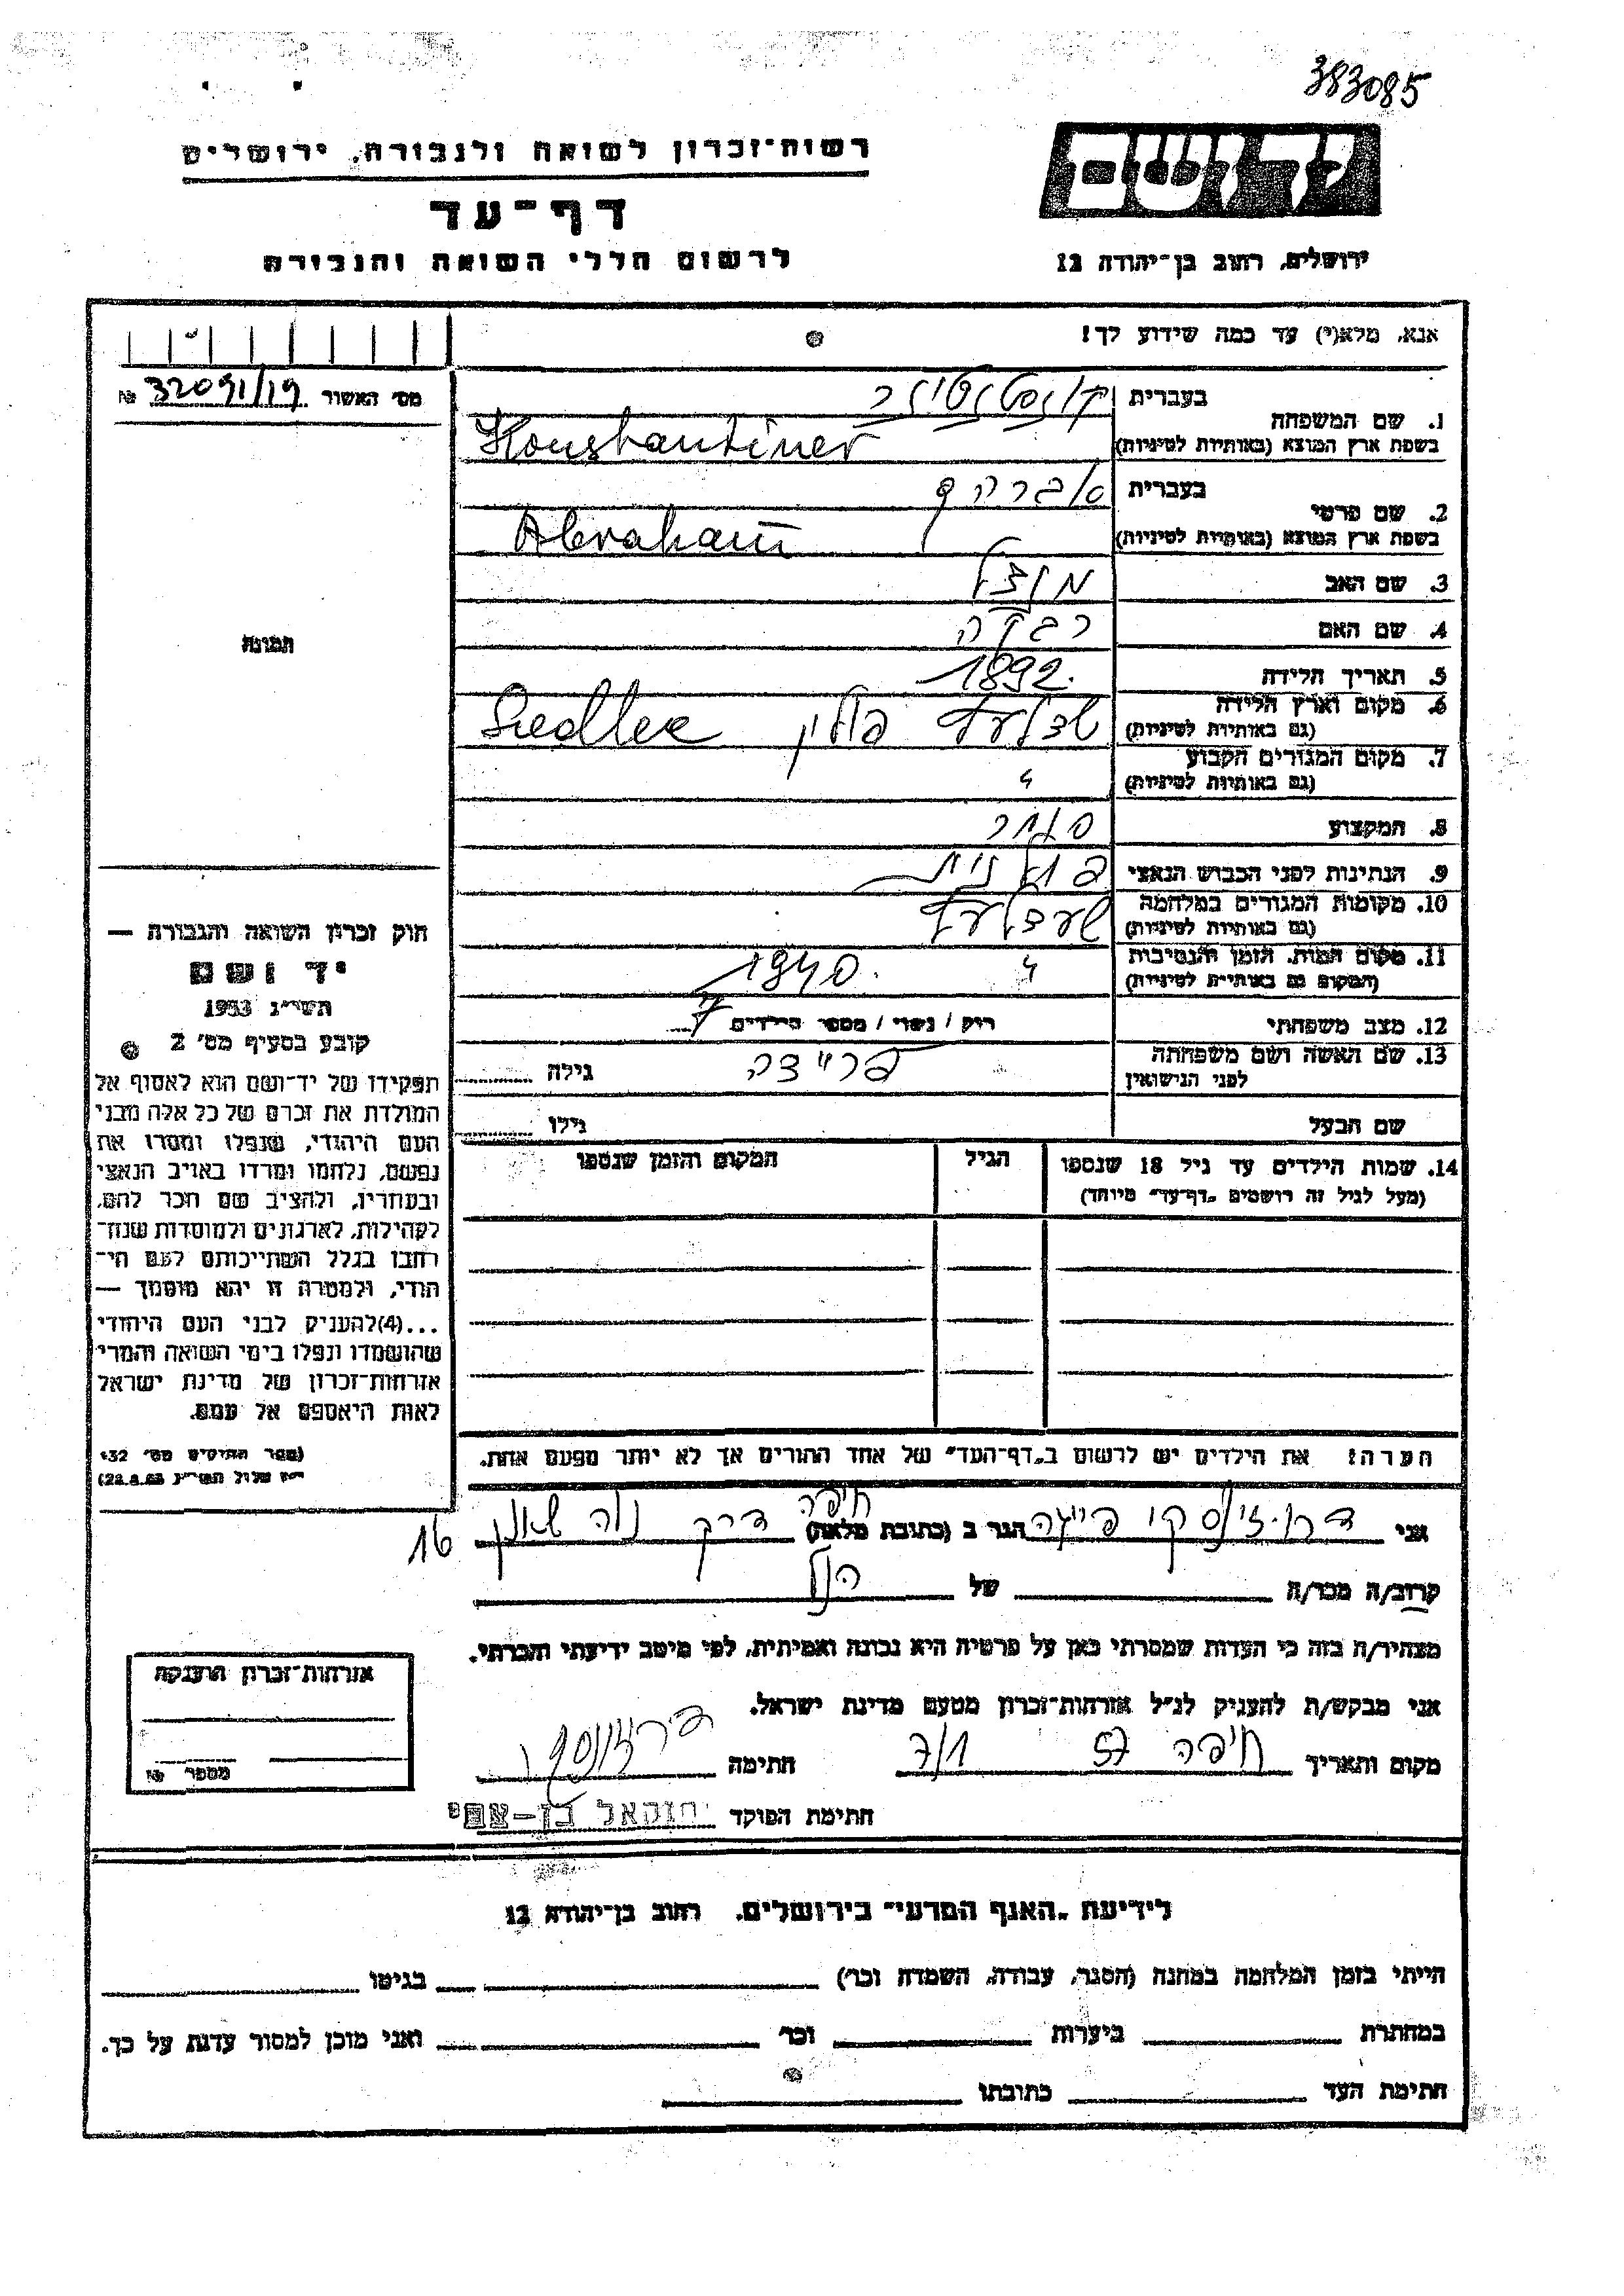 383085
רשות־זכרון לשואה ולגבורה, ירושלים
דף־עד
לרשום חללי השואה והגבורה
יד ושם
ירושלים, רחוב בן־יהודה 12
אנא, מלא(י) עד כמה שידוע לך!
מס׳ האשור 32091/19 №
תמונה
1. שם המשפחה
בעברית קונסטנטינר
בשפת ארץ המוצא (באותיות לטיניות) Konstantiner
2. שם פרטי
בעברית אברהם
בשפת ארץ המוצא (באותיות לטיניות) Abraham
3. שם האב מנדל
4. שם האם רבקה
5. תאריך הלידה 1892.
6. מקום וארץ הלידה
(גם באותיות לטיניות) שדלעץ פולין Siedlce
7. מקום המגורים הקבוע
(גם באותיות לטיניות) "
8. המקצוע סוחר
9. הנתינות לפני הכבוש הנאצי פולנית
10. מקומות המגורים במלחמה
(גם באותיות לטיניות) שעדלעץ
11. מקום המות, הזמן והנסיבות
(המקום גם באותיות לטיניות) " 1940.
12. מצב משפחתי רווק / נשוי / מספר הילדים 7
13. שם האשה ושם משפחתה
לפני הנישואין גילה
שם הבעל גילו
14. שמות הילדים עד גיל 18 שנספו
(מעל לגיל זה רושמים „דף־עד״ מיוחד)
הגיל
המקום והזמן שנספו
הערה: את הילדים יש לרשום ב„דף־העד״ של אחד ההורים אך לא יותר מפעם אחת.
חוק זכרון השואה והגבורה —
יד ושם
תשי״ג 1953
קובע בסעיף מס׳ 2
תפקידו של יד־ושם הוא לאסוף אל
המולדת את זכרם של כל אלה מבני
העם היהודי, שנפלו ומסרו את
נפשם, נלחמו ומרדו באויב הנאצי
ובעוזריו, ולהציב שם וזכר להם,
לקהילות, לארגונים ולמוסדות שנח־
רבו בגלל השתייכותם לעם הי־
הודי, ולמטרה זו יהא מוסמך —
...(4) להעניק לבני העם היהודי
שהושמדו ונפלו בימי השואה והמרי
אזרחות־זכרון של מדינת ישראל
לאות היאספם אל עמם.
(ספר החוקים מס׳ 132
י״ז אלול תשי״ג 28.8.53)
אני הגר ב (כתובת מלאה) חיפה דרך נוה שאנן 16
קרוב/ה מכר/ה של הנ״ל
מצהיר/ה בזה כי העדות שמסרתי כאן על פרטיה היא נכונה ואמיתית, לפי מיטב ידיעתי והכרתי.
אני מבקש/ת להעניק לנ״ל אזרחות־זכרון מטעם מדינת ישראל.
מקום ותאריך חיפה 57 7/1 חתימה
חתימת הפוקד יחזקאל בן־צבי
אזרחות־זכרון הוענקה
מספר №
לידיעת „האגף המדעי״ בירושלים, רחוב בן־יהודא 12
הייתי בזמן המלחמה במחנה (הסגר, עבודה, השמדה וכו׳) בגיטו
במחתרת ביערות וכו׳ ואני מוכן למסור עדות על כך.
חתימת העד כתובתו